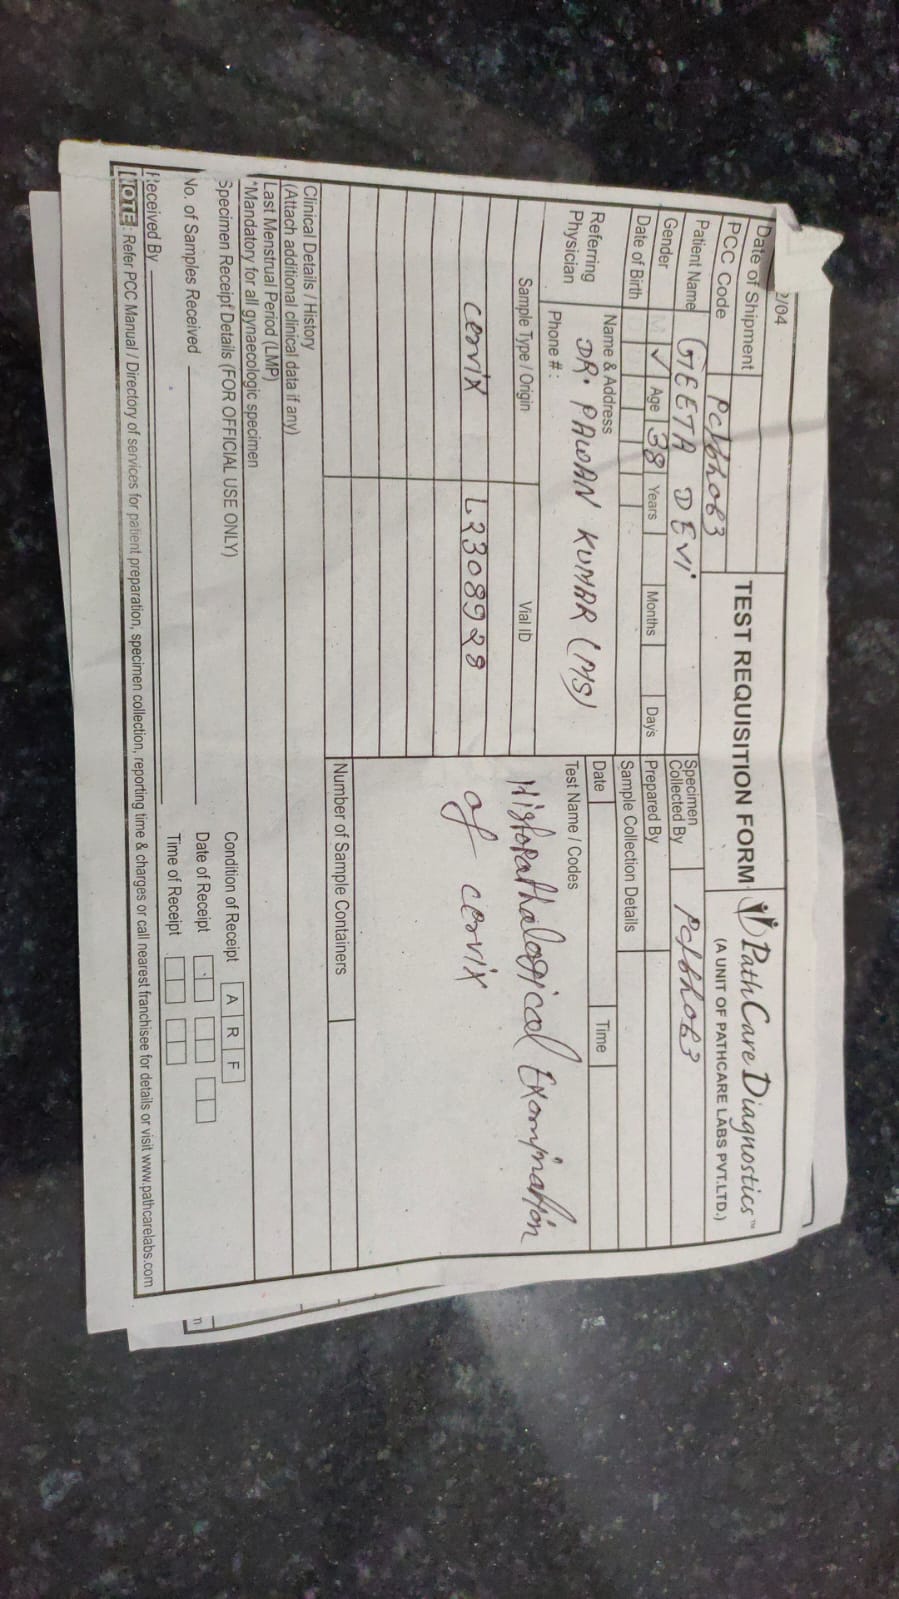 2/04
TEST REQUISITION FORM
PathCare Diagnostics™
(A UNIT OF PATHCARE LABS PVT.LTD.)
Date of Shipment
PCC Code
Patient Name GEETA DEVi
Gender ✓ Age 38 Years Months Days
Date of Birth
Referring Physician
Name & Address
DR. PAWAN KUMAR (MS)
Phone # :
Specimen Collected By
Prepared By
Sample Collection Details
Date Time
Test Name / Codes
Histopathalogical Examination
of cervix
Sample Type / Origin Vial ID
cervix L2308928
Number of Sample Containers
Clinical Details / History
(Attach additional clinical data if any)
Last Menstrual Period (LMP)
*Mandatory for all gynaecologic specimen
Specimen Receipt Details (FOR OFFICIAL USE ONLY)
Condition of Receipt A R F
No. of Samples Received
Date of Receipt
Received By
Time of Receipt
NOTE: Refer PCC Manual / Directory of services for patient preparation, specimen collection, reporting time & charges or call nearest franchisee for details or visit www.pathcarelabs.com